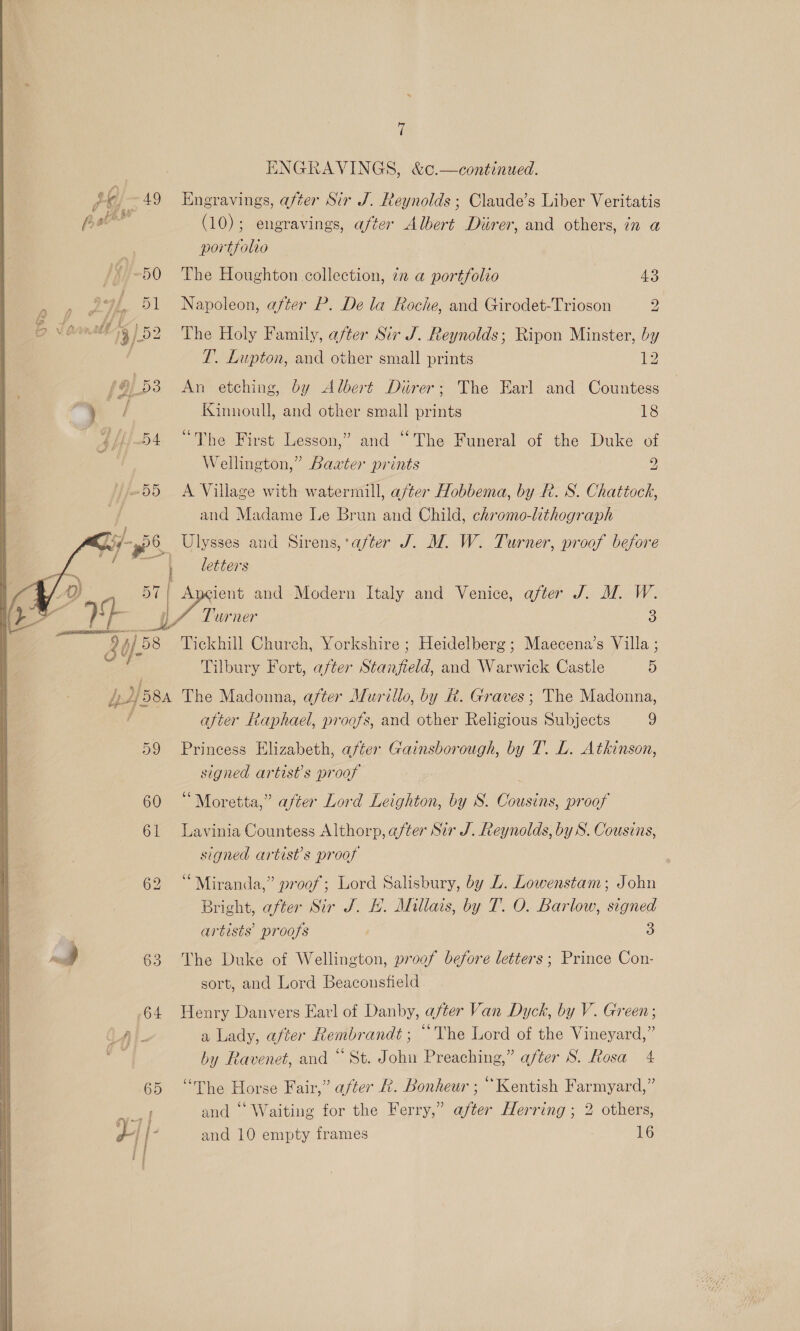 7
ENGRAVINGS, &c.—continued.
49 Engravings, after Sir J. Reynolds; Claude's Liber Veritatis
(10); engravings, after Albert Dürer, and others, in a
portfolio
50 The Houghton collection, in a portfolio 43
51 Napoleon, after P. De la Roche, and Girodet-Trioson 2
52 The Holy Family, after Sir J. Reynolds; Ripon Minster, by
T. Lupton, and other small prints 12
53 An etching, by Albert Dürer; The Earl and Countess
Kinnoull, and other small prints 18
54 “The First Lesson,” and “The Funeral of the Duke of
Wellington,” Baxter prints 2
55 A Village with watermill, after Hobbema, by R. S. Chattock,
and Madame Le Brun and Child, chromo-lithograph
56 Ulysses and Sirens, after J. M. W. Turner, proof before
letters
57 Ancient and Modern Italy and Venice, after J. M. W.
Turner 3
58 Tickhill Church, Yorkshire; Heidelberg; Maecena's Villa;
Tilbury Fort, after Stanfield, and Warwick Castle 5
58A The Madonna, after Murillo, by R. Graves; The Madonna,
after Raphael, proofs, and other Religious Subjects 9
59 Princess Elizabeth, after Gainsborough, by T. L. Atkinson,
signed artist's proof
60 “Moretta,” after Lord Leighton, by S. Cousins, proof
61 Lavinia Countess Althorp, after Sir J. Reynolds, by S. Cousins,
signed artist's proof
62 “Miranda,” proof; Lord Salisbury, by L. Lowenstam; John
Bright, after Sir J. E. Millais, by T. O. Barlow, signed
artists' proofs 3
63 The Duke of Wellington, proof before letters; Prince Con-
sort, and Lord Beaconsfield
64 Henry Danvers Earl of Danby, after Van Dyck, by V. Green;
a Lady, after Rembrandt; “The Lord of the Vineyard,”
by Ravenet, and “St. John Preaching,” after S. Rosa 4
65 “The Horse Fair,” after R. Bonheur; “Kentish Farmyard,”
and “Waiting for the Ferry,” after Herring; 2 others,
and 10 empty frames 16